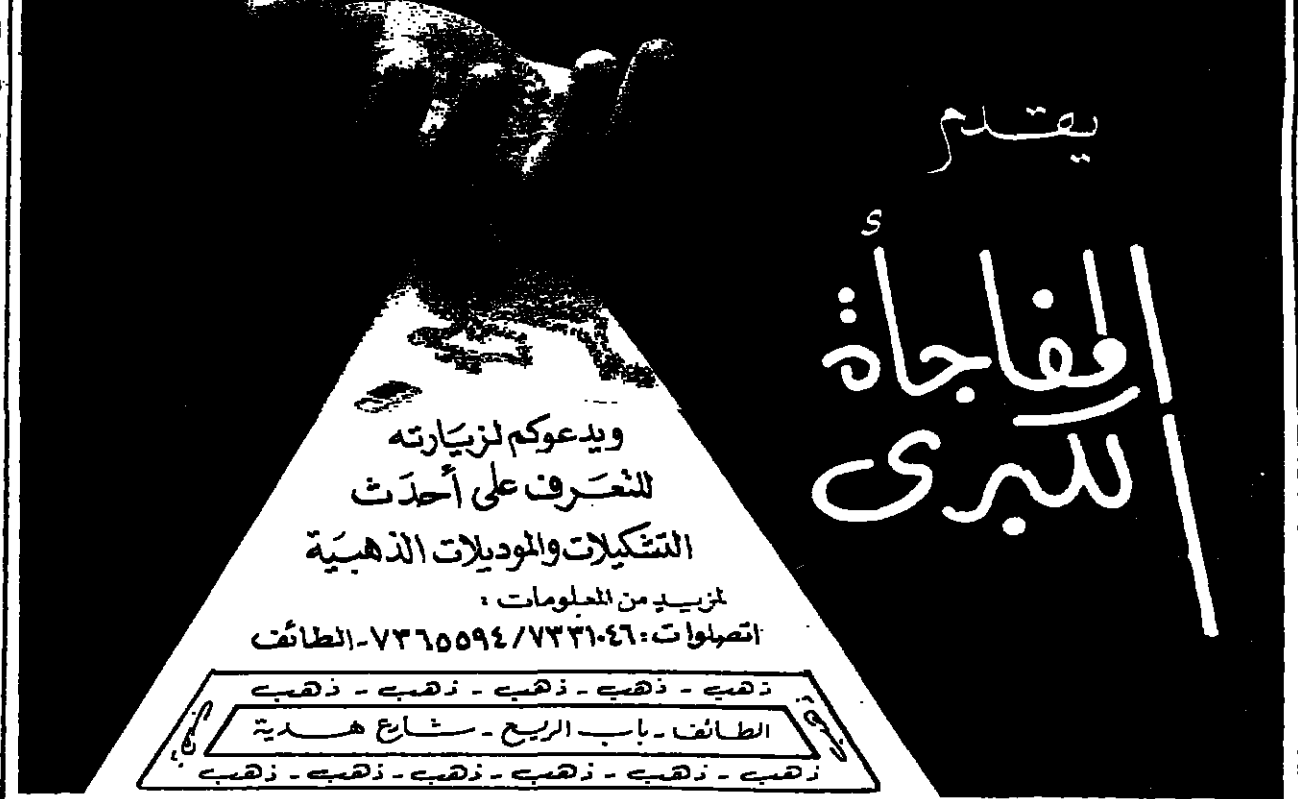 يقدم
المفاجأة
الكبرى
ويدعوكم لزيارته
للتعرف على أحدث
التشكيلات والموديلات الذهبية
لمزيد من المعلومات :
اتصلوا ت : ٧٣٣١٠٤٦ / ٧٣٦٥٥٩٤ - الطائف
ذهب - ذهب - ذهب - ذهب - ذهب
الطائف - باب الريع - شارع هدية
ذهب - ذهب - ذهب - ذهب - ذهب - ذهب